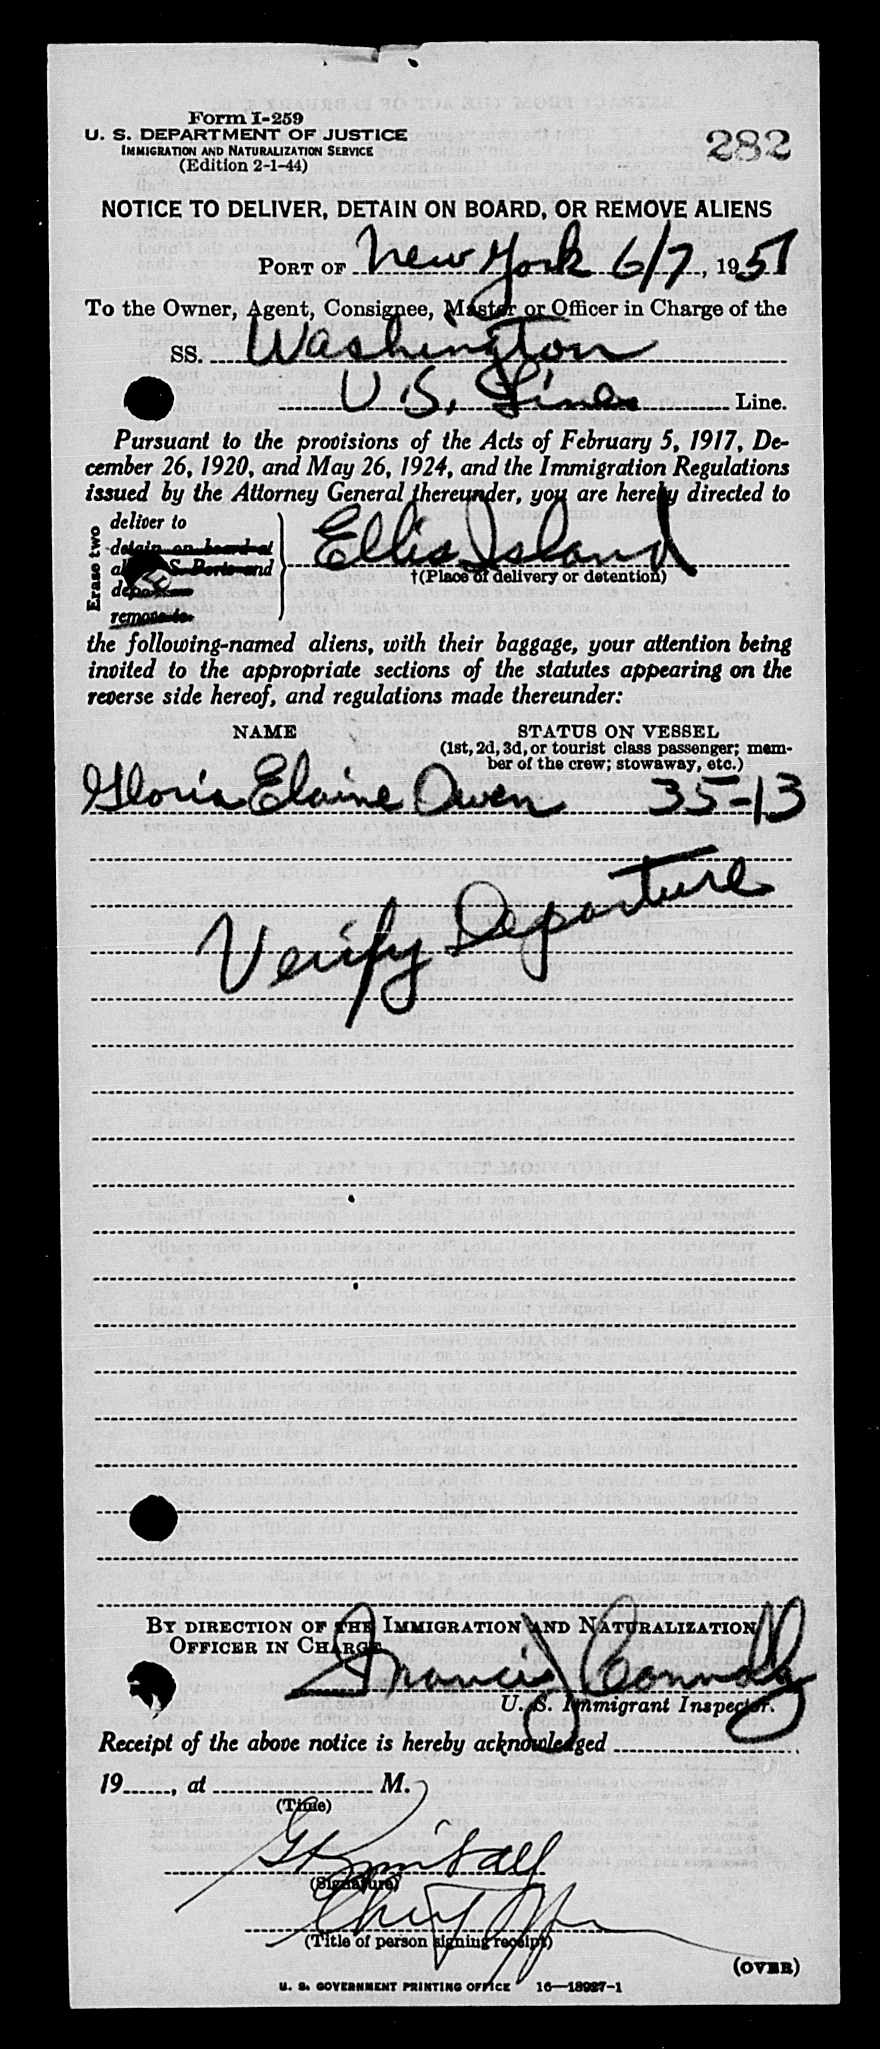 Form I-259
U. S. DEPARTMENT OF JUSTICE
IMMIGRATION AND NATURALIZATION SERVICE
(Edition 2-1-44)
282
NOTICE TO DELIVER, DETAIN ON BOARD, OR REMOVE ALIENS
PORT OF New York 6/7, 1951
To the Owner, Agent, Consignee, Master or Officer in Charge of the
SS. Washington
U.S. Lines Line.
Pursuant to the provisions of the Acts of February 5, 1917, De-
cember 26, 1920, and May 26, 1924, and the Immigration Regulations
issued by the Attorney General thereunder, you are hereby directed to
Erase two
deliver to
detain on board at
S. Ports and
remove to
Ellis Island
†(Place of delivery or detention)
the following-named aliens, with their baggage, your attention being
invited to the appropriate sections of the statutes appearing on the
reverse side hereof, and regulations made thereunder:
NAME STATUS ON VESSEL
(1st, 2d, 3d, or tourist class passenger; mem-
ber of the crew; stowaway, etc.)
Gloria Elaine Owen 35-13
Verify Departure
BY DIRECTION OF THE IMMIGRATION AND NATURALIZATION
OFFICER IN CHARGE
Francis J Connolly
U. S. Immigrant Inspector.
Receipt of the above notice is hereby acknowledged
19, at M.
(Time)
(Signature)
Chief
(Title of person signing receipt)
(OVER)
U. S. GOVERNMENT PRINTING OFFICE 16—18927-1